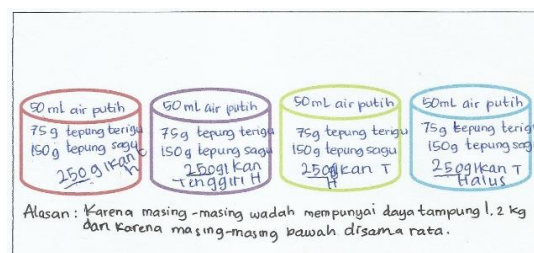 50 mL air putih
75 g tepung terigu
150 g tepung sagu
250 g Ikan t
h
50 mL air putih
75 g tepung terigu
150 g tepung sagu
250 g Ikan
Tenggiri H
50 mL air putih
75 g tepung terigu
150 g tepung sagu
250 g Ikan T
H
50 mL air putih
75 g tepung terigu
150 g tepung sagu
250 g Ikan T
Halus
Alasan : Karena masing-masing wadah mempunyai daya tampung 1.2 kg
dan karena masing-masing bawah disama rata.